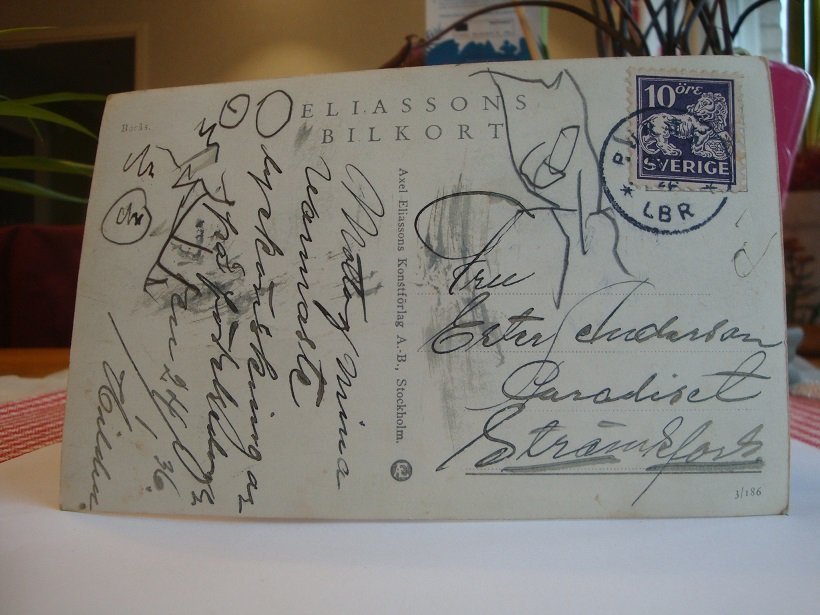 Borås.
ELIASSONS
BILKORT
10 ÖRE
SVERIGE
LBR
Mottag mina
varmaste
lyckönskningar
på födelsedagen
den 24/1 36
Hilda
Axel Eliassons Konstförlag A.-B., Stockholm.
Fru
Ester Anderson
Paradiset
Strömsfors
3/186